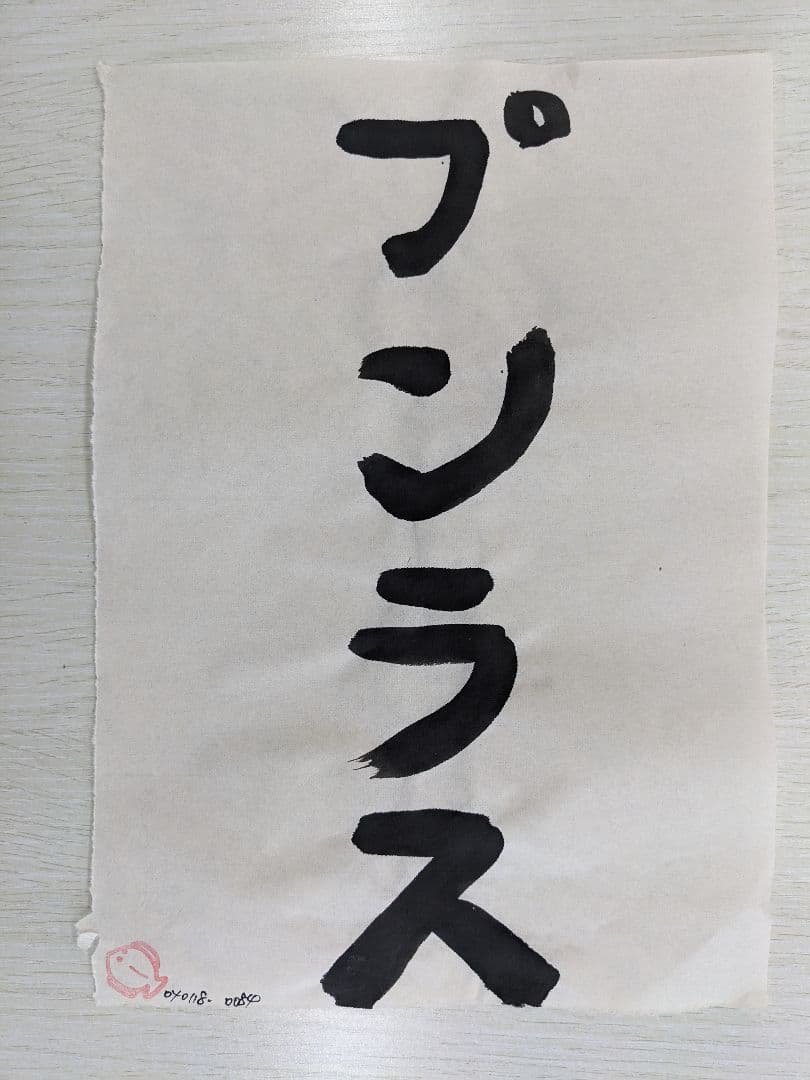 プンラス
040118. 0084